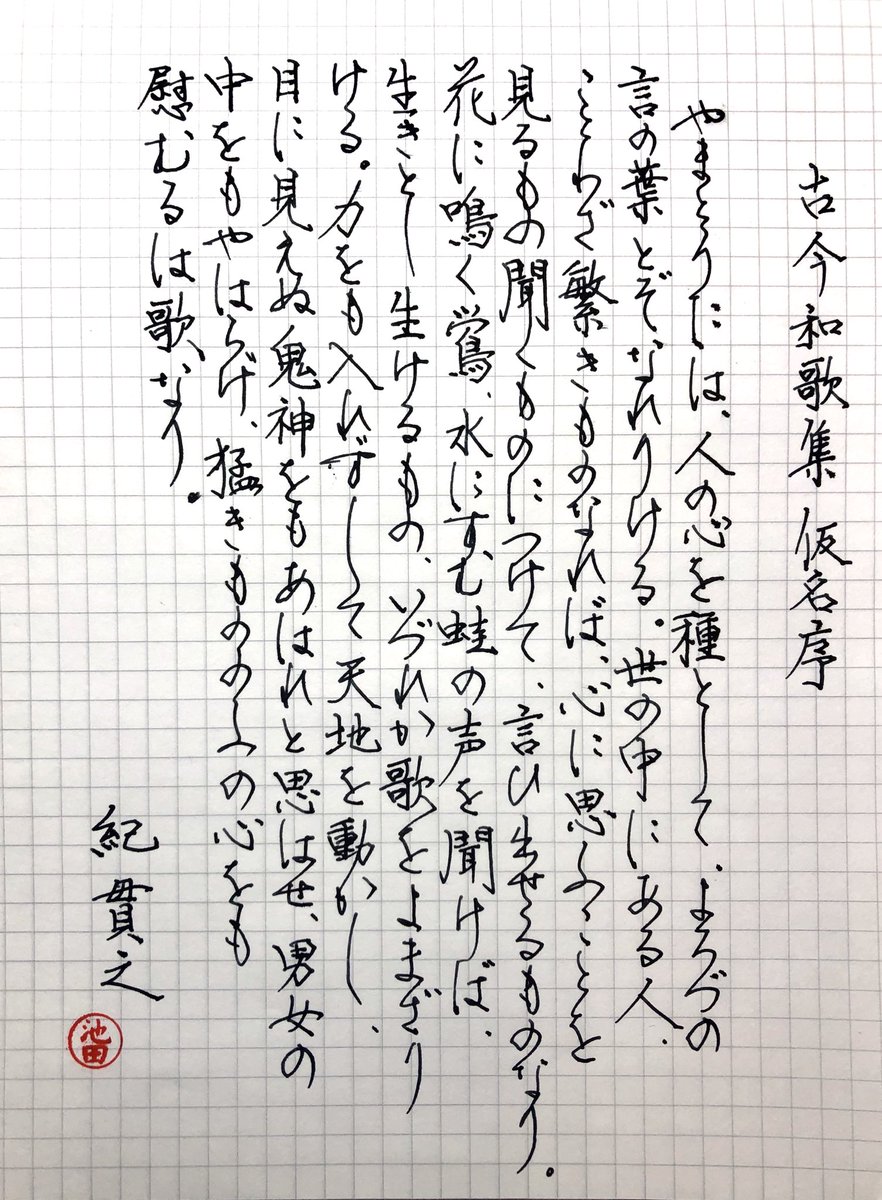 古今和歌集 仮名序
やまとうたは、人の心を種として、よろづの
言の葉とぞなれりける。世の中にある人、
ことわざ繁きものなれば、心に思ふことを
見るもの聞くものにつけて、言ひ出せるものなり。
花に鳴く鶯、水にすむ蛙の声を聞けば、
生きとし生けるもの、いづれか歌をよまざり
ける。力をも入れずして天地を動かし、
目に見えぬ鬼神をもあはれと思はせ、男女の
中をもやはらげ、猛きもののふの心をも
慰むるは歌なり。
紀貫之
池田